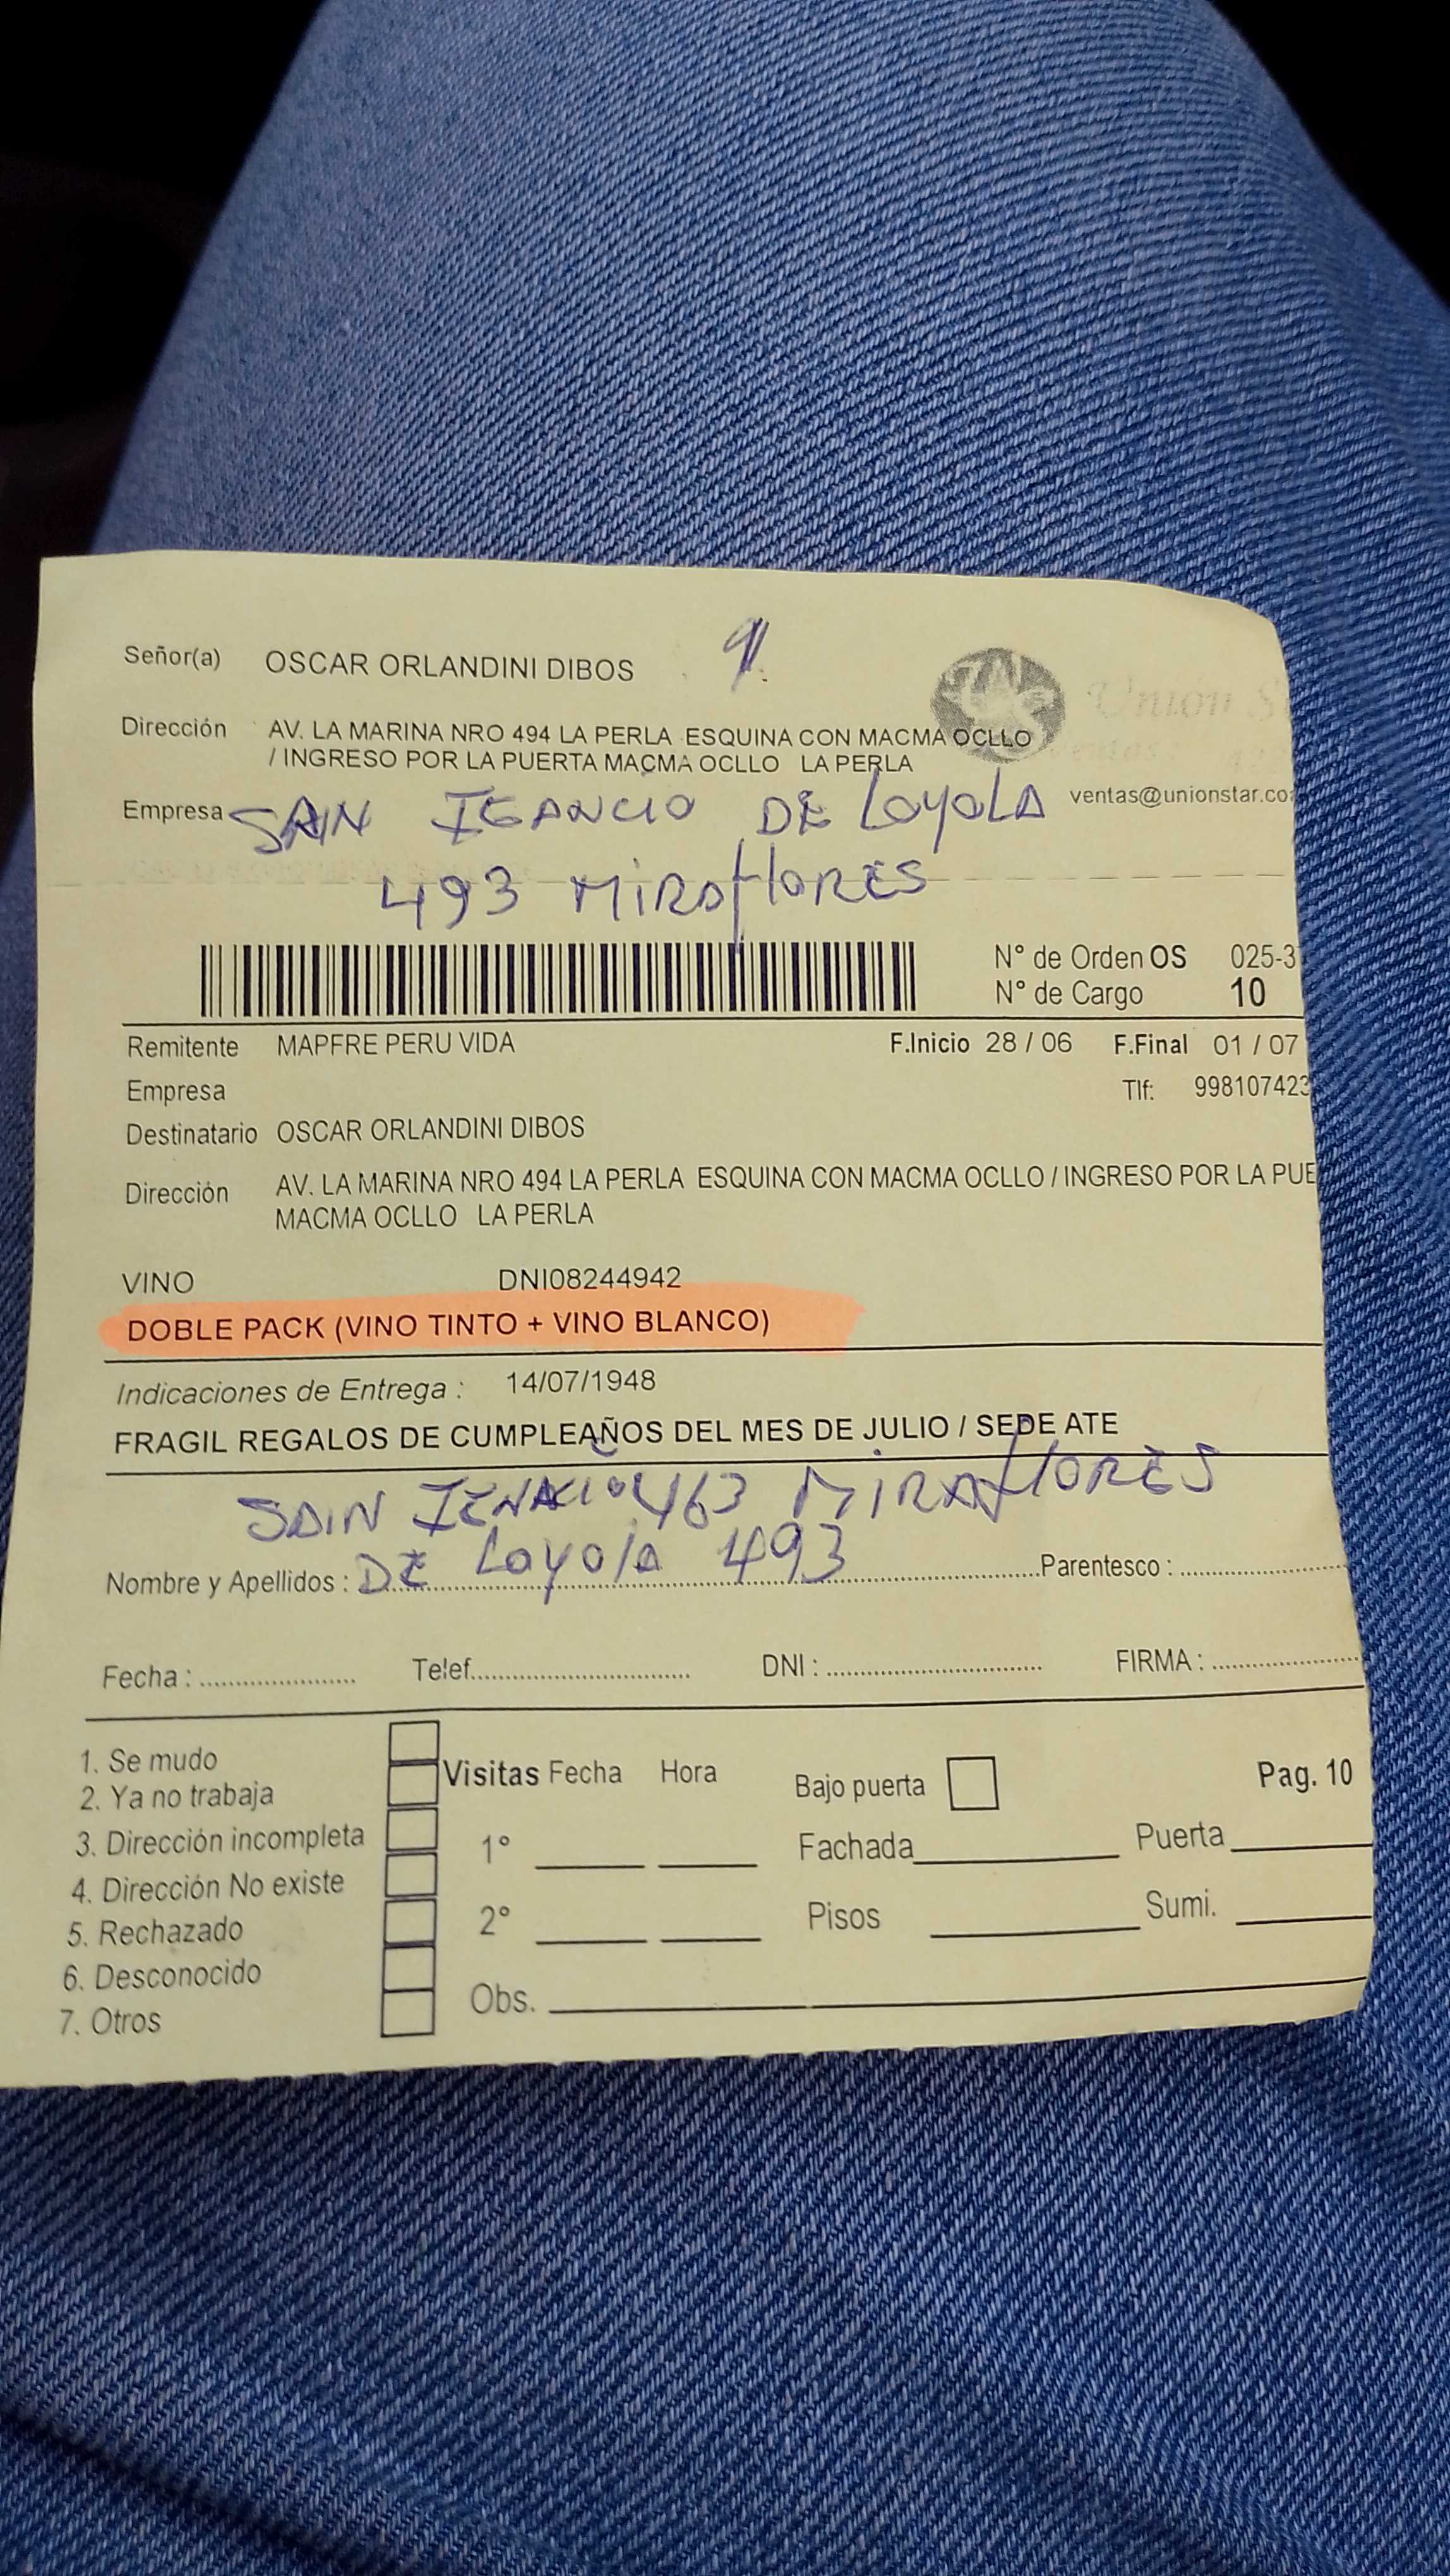 Señor(a) OSCAR ORLANDINI DIBOS
Dirección AV. LA MARINA NRO 494 LA PERLA ESQUINA CON MACMA OCLLO
/ INGRESO POR LA PUERTA MACMA OCLLO LA PERLA
Unión S
ventas@unionstar.co
Empresa SAIN IGANCIO DE LoyoLA
493 MIRAflORES
N° de Orden OS 025-3
N° de Cargo 10
Remitente MAPFRE PERU VIDA F.Inicio 28 / 06 F.Final 01 / 07
Empresa Tlf: 998107423
Destinatario OSCAR ORLANDINI DIBOS
Dirección AV. LA MARINA NRO 494 LA PERLA ESQUINA CON MACMA OCLLO / INGRESO POR LA PUE
MACMA OCLLO LA PERLA
VINO DNI08244942
DOBLE PACK (VINO TINTO + VINO BLANCO)
Indicaciones de Entrega : 14/07/1948
FRAGIL REGALOS DE CUMPLEAÑOS DEL MES DE JULIO / SEDE ATE
SAIN IGNACIO 463 MIRAflORES
Nombre y Apellidos : DE Loyola 493 Parentesco :
Fecha : Telef. DNI : FIRMA :
1. Se mudo
2. Ya no trabaja
3. Dirección incompleta
4. Dirección No existe
5. Rechazado
6. Desconocido
7. Otros
Visitas Fecha Hora Bajo puerta Pag. 10
1° Fachada Puerta
2° Pisos Sumi.
Obs.